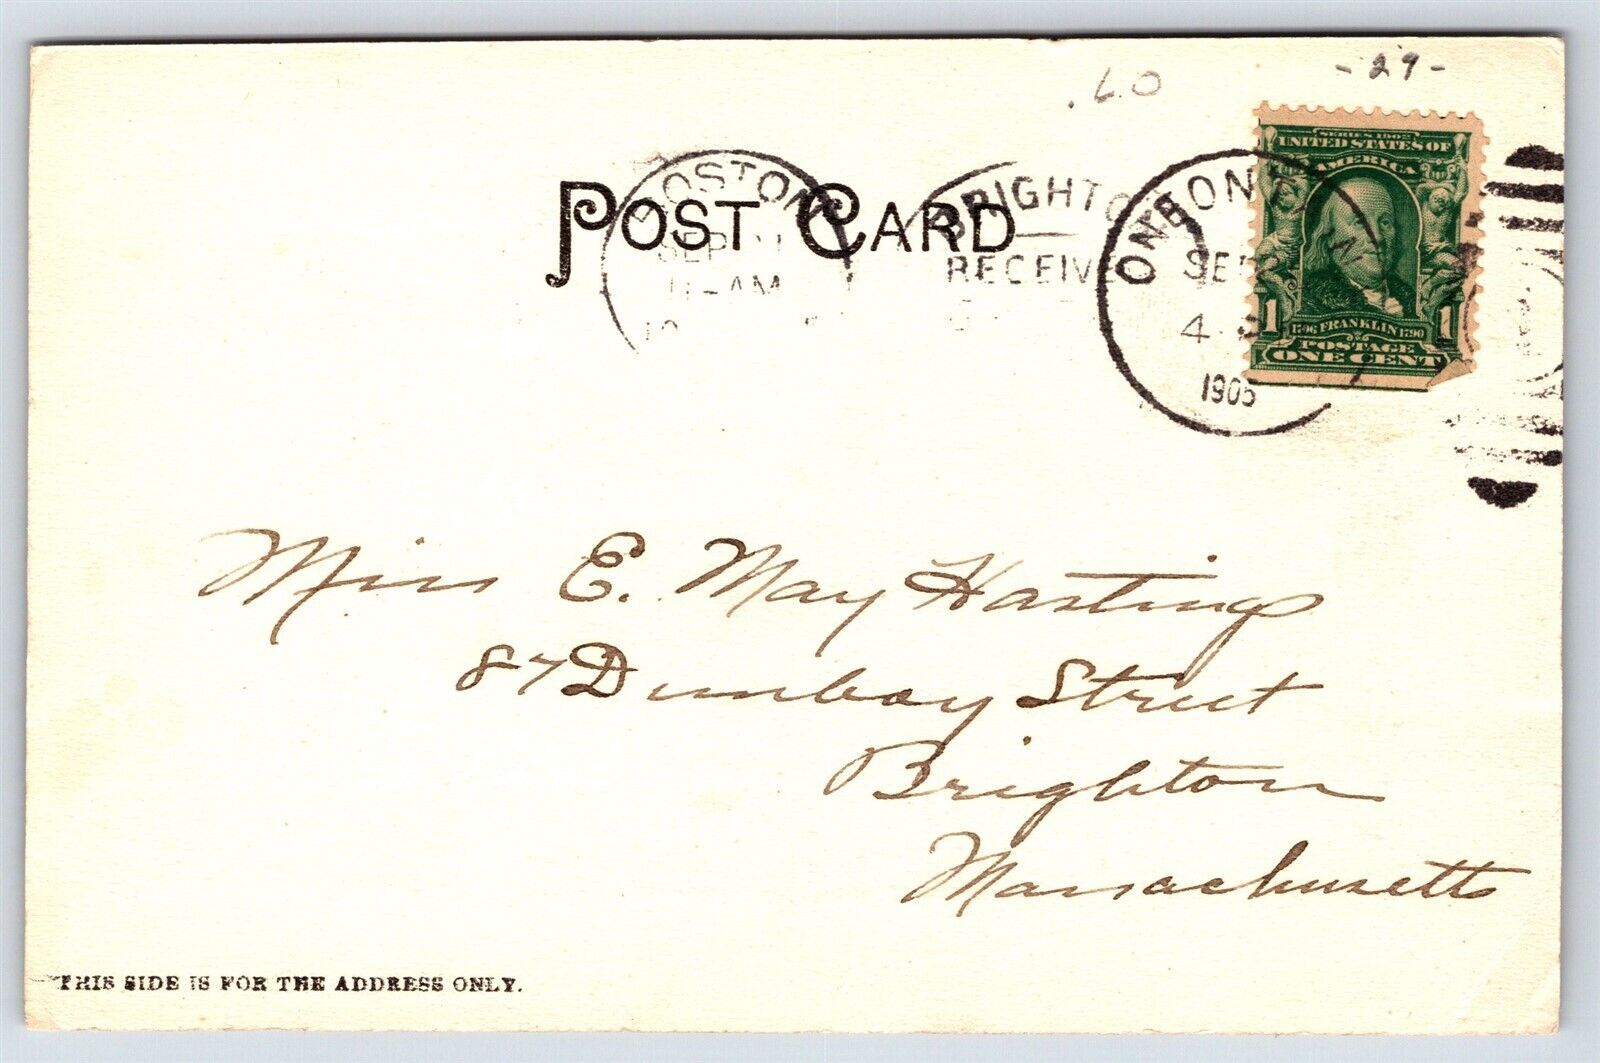 .60
-29-
POST CARD
BOSTON
SEP
11-AM
BRIGHTO
RECEIVE
SEP
4
1905
SERIES 1902
UNITED STATES OF
AMERICA
1 1
1706 FRANKLIN 1790
POSTAGE
ONE CENT
Miss E. May Hastings
87 Dunboy Street
Brighton
Massachusetts
THIS SIDE IS FOR THE ADDRESS ONLY.